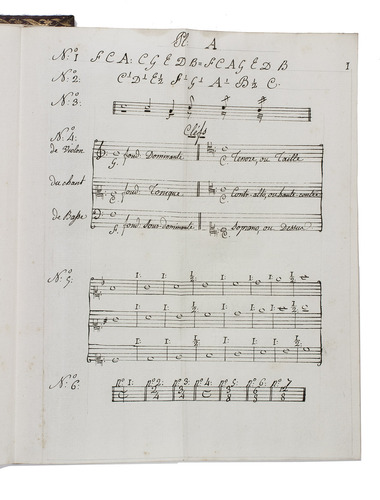 Pl A
N.º 1 F C A: C G E D B = F C A G E D B 1
N.º 2: C 1 D 1 E ½ F 1 G 1 A 1 B ½ C.
N.º 3:
N.º 4: Clefs
de Violon G. fond Dominante C Tenore, ou Taille
du chant C fond Tonique C Contr'alto, ou haute contre
de Basse F. fond Sous-dominante C Soprano, ou Dessus
N.º 5: 1: 1: ½ 1: 1: 1: ½
1: 1: ½ 1: 1: 1: ½
1: 1: ½ 1: 1: 1: ½
N.º 6: nº 1: nº 2: nº 3: nº 4: nº 5: nº 6: nº 7